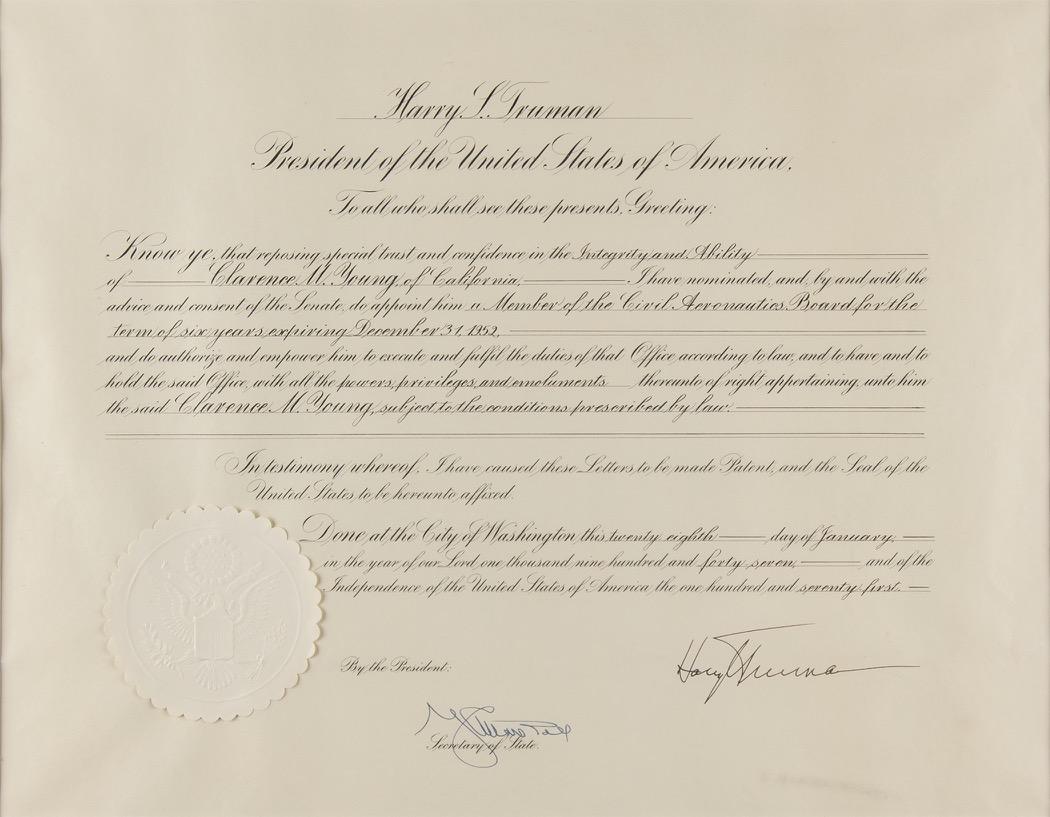 Harry S. Truman
President of the United States of America.
To all who shall see these presents, Greeting:
Know ye, that reposing special trust and confidence in the Integrity and Ability
of Clarence M. Young, of California, I have nominated, and, by and with the
advice and consent of the Senate, do appoint him a Member of the Civil Aeronautics Board for the
term of six years expiring December 31, 1952,
and do authorize and empower him to execute and fulfil the duties of that Office according to law, and to have and to
hold the said Office, with all the powers, privileges, and emoluments thereunto of right appertaining, unto him
the said Clarence M. Young, subject to the conditions prescribed by law.
In testimony whereof, I have caused these Letters to be made Patent, and the Seal of the
United States to be hereunto affixed.
Done at the City of Washington this twenty eighth day of January,
in the year of our Lord one thousand nine hundred and forty seven, and of the
Independence of the United States of America the one hundred and seventy first.
By the President:
Harry Truman
Secretary of State.